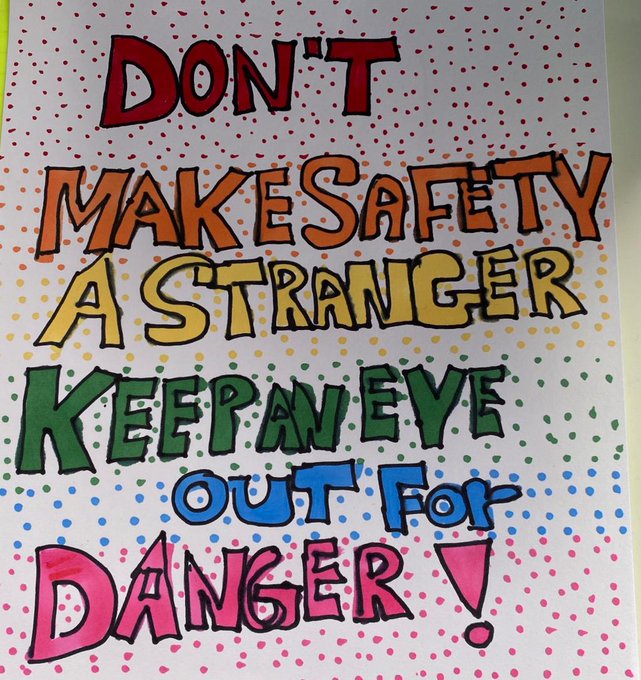 DON'T
MAKE SAFETY
A STRANGER
KEEP AN EYE
OUT FOr
DANGER!